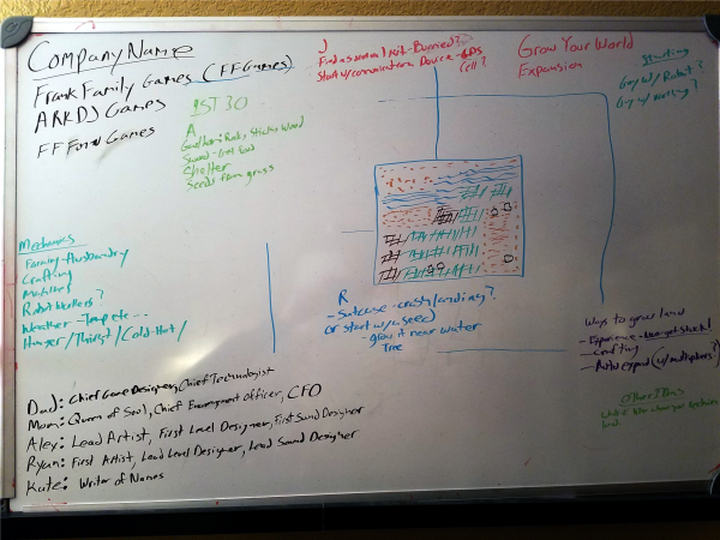 Company Name
Frank Family Games (FF Games)
ARKDJ Games
FF Games
1ST 30
A
Gather: Rock, Sticks, Wood
Sword - Get food
Shelter
Seeds from grass
J
Find a survival kit - Burried?
Start w/ communications Device - GPS
Cell?
Grow Your World
Expansion
Starting
Guy w/ Robot?
Guy w/ nothing?
Mechanics
Farming - Husbandry
Crafting
Machines
Robot Workers?
Weather - Temp etc...
Hunger / Thirst / Cold - Hot /
R
- Suitcase - crash landing?
or start w/ a seed
- grow it near water
Tree
Ways to grow land
- Experience - 
- Crafting
- Auto expand (w/ multipliers?)
Other Items
land
Dad: Chief Game Designer, Chief Technologist
Mom: Queen of Soul, Chief Officer, CFO
Alex: Lead Artist, First Level Designer, First Sound Designer
Ryan: First Artist, Lead Level Designer, Lead Sound Designer
Kate: Writer of Names